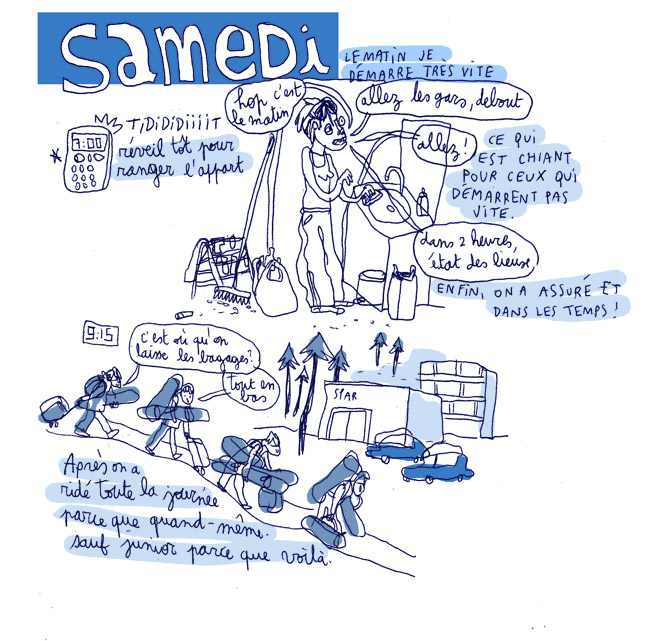 SAMEDI
LE MATIN JE
DÉMARRE TRÈS VITE
hop c'est
le matin
allez les gars, debout
TiDiDiDiiiiT
7:00
réveil tôt pour
ranger l'appart
allez!
CE QUI
EST CHIANT
POUR CEUX QUI
DÉMARRENT PAS
VITE.
dans 2 heures,
état des lieux
ENFIN, ON A ASSURÉ ET
DANS LES TEMPS!
9:15
c'est où qu'on
laisse les bagages?
tout en
bas
Après on a
ridé toute la journée
parce que quand-même.
sauf junior parce que voilà.